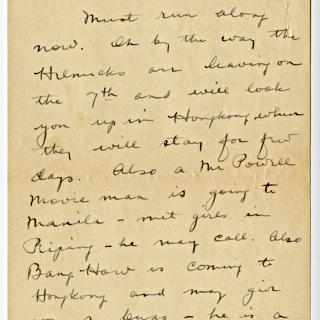 Must run along
now. Oh by the way the
Helmicks are leaving on
the 7th and will look
you up in Hongkong when
they will stay for few
days. Also a Mr Powell
movie man is going to
Manila - met girls in
Peiping - he may call. Also
Bang How is coming to
Hongkong and may give
- he is a